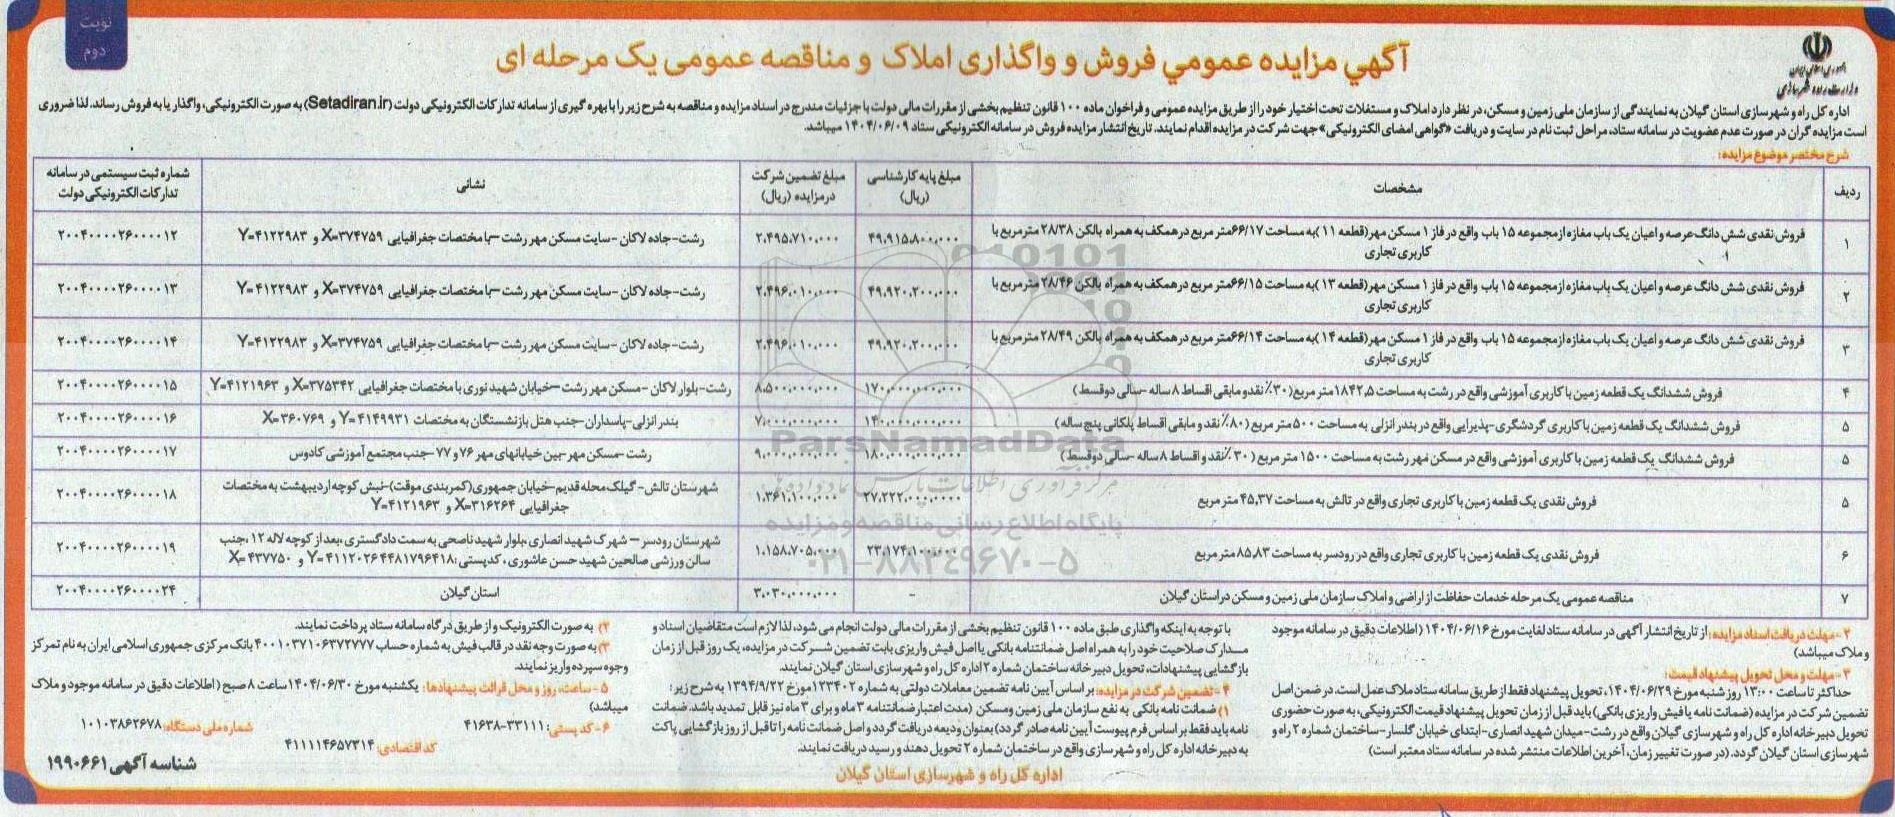 نوبت
دوم
جمهوری اسلامی ایران
وزارت راه و شهرسازی
آگهي مزايده عمومي فروش و واگذاری املاک و مناقصه عمومی یک مرحله ای
اداره کل راه و شهرسازی استان گیلان به نمایندگی از سازمان ملی زمین و مسکن، در نظر دارد املاک و مستغلات تحت اختیار خود را از طریق مزایده عمومی و فراخوان ماده ۱۰۰ قانون تنظیم بخشی از مقررات مالی دولت با جزئیات مندرج در اسناد مزایده و مناقصه به شرح زیر را با بهره گیری از سامانه تدارکات الکترونیکی دولت (Setadiran.ir) به صورت الکترونیکی، واگذار یا به فروش رساند. لذا ضروری
است مزایده گران در صورت عدم عضویت در سامانه ستاد، مراحل ثبت نام در سایت و دریافت «گواهی امضای الکترونیکی» جهت شرکت در مزایده اقدام نمایند. تاریخ انتشار مزایده فروش در سامانه الکترونیکی ستاد ۱۴۰۴/۰۶/۰۹ میباشد.
شرح مختصر موضوع مزایده:
ردیف مشخصات مبلغ پایه کارشناسی (ریال) مبلغ تضمین شرکت در مزایده (ریال) نشانی شماره ثبت سیستمی در سامانه تدارکات الکترونیکی دولت
۱ فروش نقدی شش دانگ عرصه و اعیان یک باب مغازه از مجموعه ۱۵ باب واقع در فاز ۱ مسکن مهر (قطعه ۱۱) به مساحت ۶۶/۱۷ متر مربع در همکف به همراه بالکن ۲۸/۳۸ متر مربع با کاربری تجاری ۴۹،۹۱۵،۸۰۰،۰۰۰ ۲،۴۹۵،۷۱۰،۰۰۰ رشت-جاده لاکان -سایت مسکن مهر رشت -با مختصات جغرافیایی X=۳۷۴۷۵۹ و Y=۴۱۲۲۹۸۳ ۲۰۰۴۰۰۰۰۲۶۰۰۰۰۱۲
۲ فروش نقدی شش دانگ عرصه و اعیان یک باب مغازه از مجموعه ۱۵ باب واقع در فاز ۱ مسکن مهر (قطعه ۱۳) به مساحت ۶۶/۱۵ متر مربع در همکف به همراه بالکن ۲۸/۴۶ متر مربع با کاربری تجاری ۴۹،۹۲۰،۲۰۰،۰۰۰ ۲،۴۹۶،۰۱۰،۰۰۰ رشت-جاده لاکان -سایت مسکن مهر رشت -با مختصات جغرافیایی X=۳۷۴۷۵۹ و Y=۴۱۲۲۹۸۳ ۲۰۰۴۰۰۰۰۲۶۰۰۰۰۱۳
۳ فروش نقدی شش دانگ عرصه و اعیان یک باب مغازه از مجموعه ۱۵ باب واقع در فاز ۱ مسکن مهر (قطعه ۱۴) به مساحت ۶۶/۱۴ متر مربع در همکف به همراه بالکن ۲۸/۴۹ متر مربع با کاربری تجاری ۴۹،۹۲۰،۲۰۰،۰۰۰ ۲،۴۹۶،۰۱۰،۰۰۰ رشت-جاده لاکان -سایت مسکن مهر رشت -با مختصات جغرافیایی X=۳۷۴۷۵۹ و Y=۴۱۲۲۹۸۳ ۲۰۰۴۰۰۰۰۲۶۰۰۰۰۱۴
۴ فروش ششدانگ یک قطعه زمین با کاربری آموزشی واقع در رشت به مساحت ۱۸۴۲،۵ متر مربع (۳۰٪ نقد و مابقی اقساط ۸ ساله -سالی دو قسط) ۱۷۰،۰۰۰،۰۰۰،۰۰۰ ۸،۵۰۰،۰۰۰،۰۰۰ رشت-بلوار لاکان -مسکن مهر رشت -خیابان شهید نوری با مختصات جغرافیایی X=۳۷۵۳۴۲ و Y=۴۱۲۱۹۶۳ ۲۰۰۴۰۰۰۰۲۶۰۰۰۰۱۵
۵ فروش ششدانگ یک قطعه زمین با کاربری گردشگری-پذیرایی واقع در بندر انزلی به مساحت ۵۰۰ متر مربع (۸۰٪ نقد و مابقی اقساط پلکانی پنج ساله) ۱۴۰،۰۰۰،۰۰۰،۰۰۰ ۷،۰۰۰،۰۰۰،۰۰۰ بندر انزلی-پاسداران-جنب هتل بازنشستگان به مختصات Y=۴۱۴۹۹۳۱ و X=۳۶۰۷۶۹ ۲۰۰۴۰۰۰۰۲۶۰۰۰۰۱۶
۵ فروش ششدانگ یک قطعه زمین با کاربری آموزشی واقع در مسکن مهر رشت به مساحت ۱۵۰۰ متر مربع (۳۰٪ نقد و اقساط ۸ ساله -سالی دو قسط) ۱۸۰،۰۰۰،۰۰۰،۰۰۰ ۹،۰۰۰،۰۰۰،۰۰۰ رشت -مسکن مهر-بین خیابانهای مهر ۷۶ و ۷۷ -جنب مجتمع آموزشی کادوس ۲۰۰۴۰۰۰۰۲۶۰۰۰۰۱۷
۵ فروش نقدی یک قطعه زمین با کاربری تجاری واقع در تالش به مساحت ۴۵،۳۷ متر مربع ۲۷،۲۲۲،۰۰۰،۰۰۰ ۱،۳۶۱،۱۰۰،۰۰۰ شهرستان تالش- گیلک محله قدیم-خیابان جمهوری (کمربندی موقت)-نبش کوچه اردیبهشت به مختصات جغرافیایی X=۳۱۶۲۶۴ و Y=۴۱۲۱۹۶۳ ۲۰۰۴۰۰۰۰۲۶۰۰۰۰۱۸
۶ فروش نقدی یک قطعه زمین با کاربری تجاری واقع در رودسر به مساحت ۸۵،۸۳ متر مربع ۲۳،۱۷۴،۱۰۰،۰۰۰ ۱،۱۵۸،۷۰۵،۰۰۰ شهرستان رودسر – شهرک شهید انصاری ،بلوار شهید ناصحی به سمت دادگستری ،بعد از کوچه لاله ۱۲ ،جنب سالن ورزشی صالحین شهید حسن عاشوری ، کدپستی: ۴۴۸۱۷۹۶۴۱۸ Y=۴۱۱۲۰۲۶ و X=۴۳۷۷۵۰ ۲۰۰۴۰۰۰۰۲۶۰۰۰۰۱۹
۷ مناقصه عمومی یک مرحله خدمات حفاظت از اراضی و املاک سازمان ملی زمین و مسکن در استان گیلان - ۳،۰۳۰،۰۰۰،۰۰۰ استان گیلان ۲۰۰۴۰۰۰۰۲۶۰۰۰۰۲۴
ParsNamadData
مرکز فرآوری اطلاعات پارس نماد داده ها
پایگاه اطلاع رسانی مناقصه و مزایده
۰۲۱-۸۸۳۴۹۶۷۰-۵
۲- مهلت دریافت اسناد مزایده: از تاریخ انتشار آگهی در سامانه ستاد لغایت مورخ ۱۴۰۴/۰۶/۱۶ (اطلاعات دقیق در سامانه موجود
و ملاک میباشد)
۳- مهلت و محل تحویل پیشنهاد قیمت:
حداکثر تا ساعت ۱۳:۰۰ روز شنبه مورخ ۱۴۰۴/۰۶/۲۹، تحویل پیشنهاد فقط از طریق سامانه ستاد ملاک عمل است. در ضمن اصل
تضمین شرکت در مزایده (ضمانت نامه یا فیش واریزی بانکی) باید قبل از زمان تحویل پیشنهاد قیمت الکترونیکی، به صورت حضوری
تحویل دبیرخانه اداره کل راه و شهرسازی گیلان واقع در رشت-میدان شهید انصاری-ابتدای خیابان گلسار-ساختمان شماره ۲ راه و
شهرسازی استان گیلان گردد. (در صورت تغییر زمان، آخرین اطلاعات منتشر شده در سامانه ستاد معتبر است)
با توجه به اینکه واگذاری طبق ماده ۱۰۰ قانون تنظیم بخشی از مقررات مالی دولت انجام می شود، لذا لازم است متقاضیان اسناد و
مدارک صلاحیت خود را به همراه اصل ضمانتنامه بانکی یا اصل فیش واریزی بابت تضمین شرکت در مزایده، یک روز قبل از زمان
بازگشایی پیشنهادات، تحویل دبیرخانه ساختمان شماره ۲ اداره کل راه و شهرسازی استان گیلان نمایند.
۴- تضمین شرکت در مزایده: بر اساس آیین نامه تضمین معاملات دولتی به شماره ۱۲۳۴۰۲ مورخ ۱۳۹۴/۹/۲۲ به شرح زیر:
۱) ضمانت نامه بانکی به نفع سازمان ملی زمین ومسکن (مدت اعتبار ضمانتنامه ۳ ماه و برای ۳ ماه نیز قابل تمدید باشد. ضمانت
نامه باید فقط بر اساس فرم پیوست آیین نامه صادر گردد) بعنوان ودیعه دریافت گردد و اصل ضمانت نامه را تا قبل از روز بازگشایی پاکت
به دبیرخانه اداره کل راه و شهرسازی واقع در ساختمان شماره ۲ تحویل دهند و رسید دریافت نمایند.
۲) به صورت الکترونیک و از طریق درگاه سامانه ستاد پرداخت نمایند.
۳) به صورت وجه نقد در قالب فیش به شماره حساب ۴۰۰۱۰۳۷۱۰۶۳۷۲۷۷۷ بانک مرکزی جمهوری اسلامی ایران به نام تمرکز
وجوه سپرده واریز نمایند.
۵- ساعت، روز و محل قرائت پیشنهادها: یکشنبه مورخ ۱۴۰۴/۰۶/۳۰ ساعت ۸ صبح (اطلاعات دقیق در سامانه موجود و ملاک
میباشد)
۶- کد پستی: ۳۳۱۱۱-۴۱۶۳۸ شماره ملی دستگاه: ۱۰۱۰۳۸۶۲۶۷۸
کد اقتصادی: ۴۱۱۱۱۴۶۵۷۳۱۴
شناسه آگهی ۱۹۹۰۶۶۱
اداره کل راه و شهرسازی استان گیلان